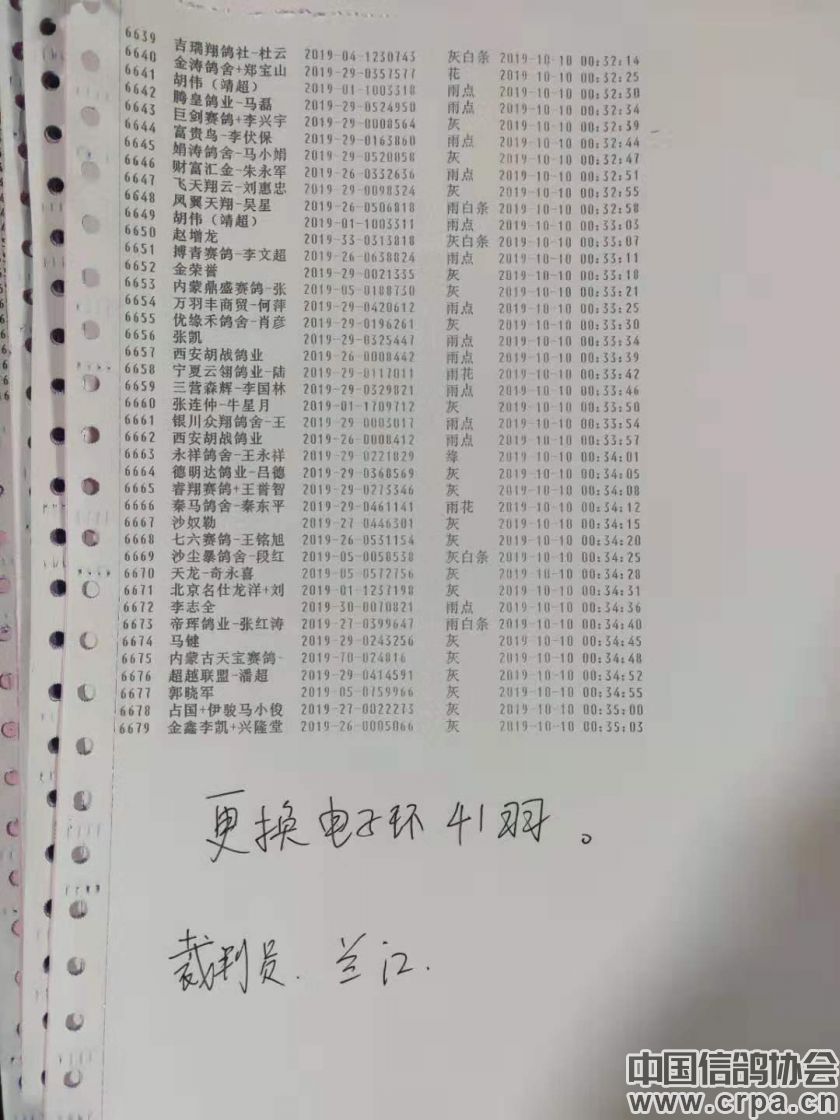 6639 吉瑞翔鸽社-杜云 2019-04-1230743 灰白条 2019-10-10 00:32:14
6640 金涛鸽舍+郑宝山 2019-29-0357577 花 2019-10-10 00:32:25
6641 胡伟（靖超） 2019-01-1003318 雨点 2019-10-10 00:32:30
6642 腾皇鸽业-马磊 2019-29-0524950 雨点 2019-10-10 00:32:34
6643 巨剑赛鸽+李兴宇 2019-29-0008564 灰 2019-10-10 00:32:39
6644 富贵鸟-李伏保 2019-29-0163860 雨点 2019-10-10 00:32:44
6645 娟涛鸽舍-马小娟 2019-29-0520058 灰 2019-10-10 00:32:47
6646 财富汇金-朱永军 2019-26-0332636 雨点 2019-10-10 00:32:51
6647 飞天翔云-刘惠忠 2019-29-0098324 灰 2019-10-10 00:32:55
6648 凤翼天翔-吴星 2019-26-0506818 雨白条 2019-10-10 00:32:58
6649 胡伟（靖超） 2019-01-1003311 雨点 2019-10-10 00:33:03
6650 赵增龙 2019-33-0313818 灰白条 2019-10-10 00:33:07
6651 搏青赛鸽-李文超 2019-26-0638824 雨点 2019-10-10 00:33:11
6652 金荣誉 2019-29-0021335 灰 2019-10-10 00:33:18
6653 内蒙鼎盛赛鸽-张 2019-05-0188730 灰 2019-10-10 00:33:21
6654 万羽丰商贸-何萍 2019-29-0420612 雨点 2019-10-10 00:33:25
6655 优缘禾鸽舍-肖彦 2019-29-0196261 灰 2019-10-10 00:33:30
6656 张凯 2019-29-0325447 雨点 2019-10-10 00:33:34
6657 西安胡战鸽业 2019-26-0008442 雨点 2019-10-10 00:33:39
6658 宁夏云翎鸽业-陆 2019-29-0117011 雨花 2019-10-10 00:33:42
6659 三营森辉-李国林 2019-29-0329821 雨点 2019-10-10 00:33:46
6660 张连仲-牛星月 2019-01-1709712 灰 2019-10-10 00:33:50
6661 银川众翔鸽舍-王 2019-29-0003017 雨点 2019-10-10 00:33:54
6662 西安胡战鸽业 2019-26-0008412 雨点 2019-10-10 00:33:57
6663 永祥鸽舍-王永祥 2019-29-0221829 绛 2019-10-10 00:34:01
6664 德明达鸽业-吕德 2019-29-0368569 灰 2019-10-10 00:34:05
6665 睿翔赛鸽+王誉智 2019-29-0273346 灰 2019-10-10 00:34:08
6666 秦马鸽舍-秦东平 2019-29-0461141 雨花 2019-10-10 00:34:12
6667 沙奴勒 2019-27-0446301 灰 2019-10-10 00:34:15
6668 七六赛鸽-王铭旭 2019-26-0531154 灰 2019-10-10 00:34:20
6669 沙尘暴鸽舍-段红 2019-05-0050538 灰白条 2019-10-10 00:34:25
6670 天龙-奇永喜 2019-05-0572756 灰 2019-10-10 00:34:28
6671 北京名仕龙洋+刘 2019-01-1237198 灰 2019-10-10 00:34:31
6672 李志全 2019-30-0070821 雨点 2019-10-10 00:34:36
6673 帝珲鸽业-张红涛 2019-27-0399647 雨白条 2019-10-10 00:34:40
6674 马键 2019-29-0243256 灰 2019-10-10 00:34:45
6675 内蒙古天宝赛鸽- 2019-70-024816 灰 2019-10-10 00:34:48
6676 超越联盟-潘超 2019-29-0414591 灰 2019-10-10 00:34:52
6677 郭晓军 2019-05-0759966 灰 2019-10-10 00:34:55
6678 占国+伊骏马小俊 2019-27-0022273 灰 2019-10-10 00:35:00
6679 金鑫李凯+兴隆堂 2019-26-0005066 灰 2019-10-10 00:35:03
更换电子环41羽。
裁判员. 兰江.
中国信鸽协会
www.crpa.cn